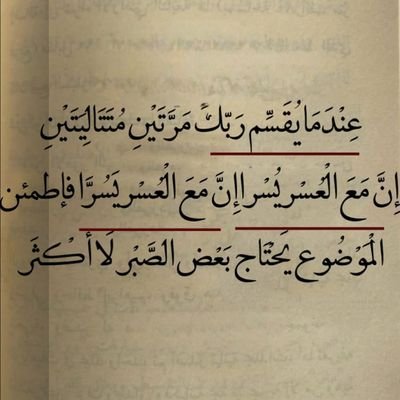 عِنْدَمَا يُقَسِّم رَبّكَ مَرَّتَيْنِ مُتَتَالِيَتَيْنِ
إِنَّ مَعَ الْعُسْرِ يُسْرا إِنَّ مَعَ الْعُسْرِ يَسُرَّا فإطمئن
الْمَوْضُوع يَحْتَاج بَعْض الصَّبْر لَا أَكْثَرَ